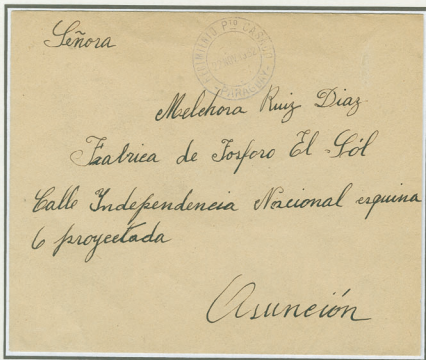 Señora
Melchora Ruiz Diaz
Fabrica de Fosforo El Sól
Calle Independencia Nacional esquina
6 proyectada
Asunción
PARAGUAY